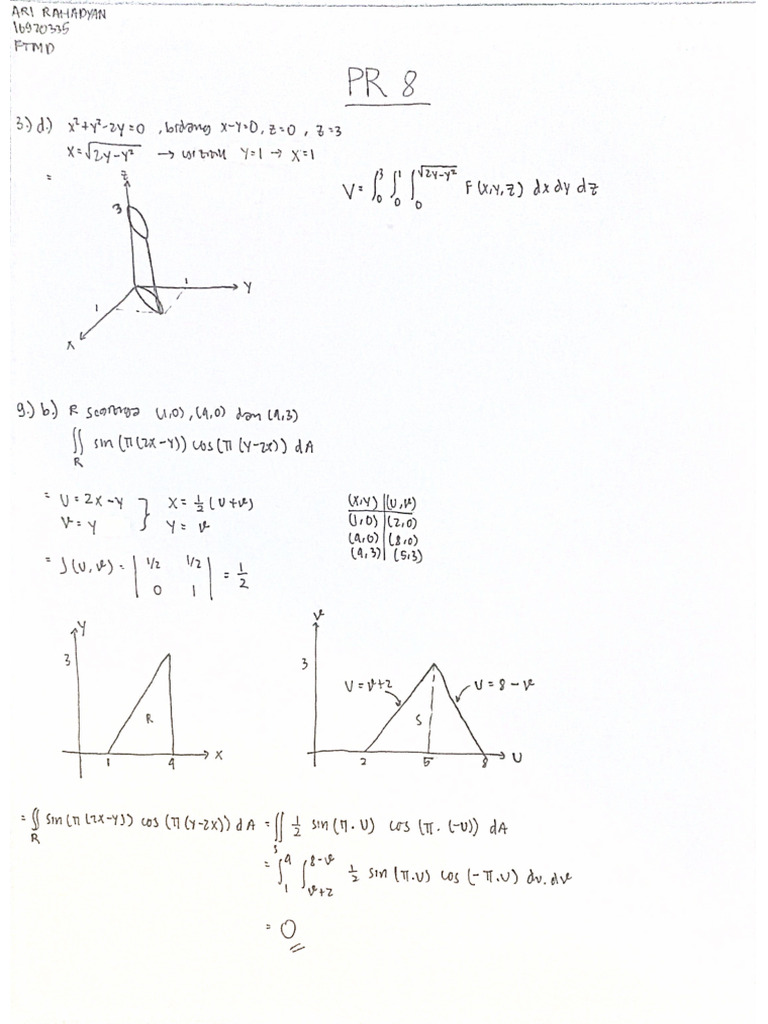 ARI RAHADYAN
16920335
FTMD
PR 8
3.) d.) x²+y²-2y=0 , bidang x-y=0, z=0 , z=3
x=√(2y-y²) → y=1 → x=1
=
V = ∫₀³ ∫₀¹ ∫₀^√(2y-y²) F(x,y,z) dx dy dz
z
3
1
1
y
x
9.) b.) R segitiga (1,0), (4,0) dan (4,3)
∬_R sin(π(2x-y)) cos(π(y-2x)) dA
= u = 2x-y } x = ½(u+v)
v = y } y = v
(x,y) | (u,v)
(1,0) | (2,0)
(4,0) | (8,0)
(4,3) | (5,3)
= J(u,v) = | 1/2 1/2 | = 1/2
0 1
y
3
R
1 4 x
v
3
u = v+2
u = 8-v
S
2 5 8 u
= ∬_R sin(π(2x-y)) cos(π(y-2x)) dA = ∬_S ½ sin(π.u) cos(π.(-u)) dA
= ∫₁⁴ ∫_{v+2}^{8-v} ½ sin(π.u) cos(-π.u) du.dv
= 0